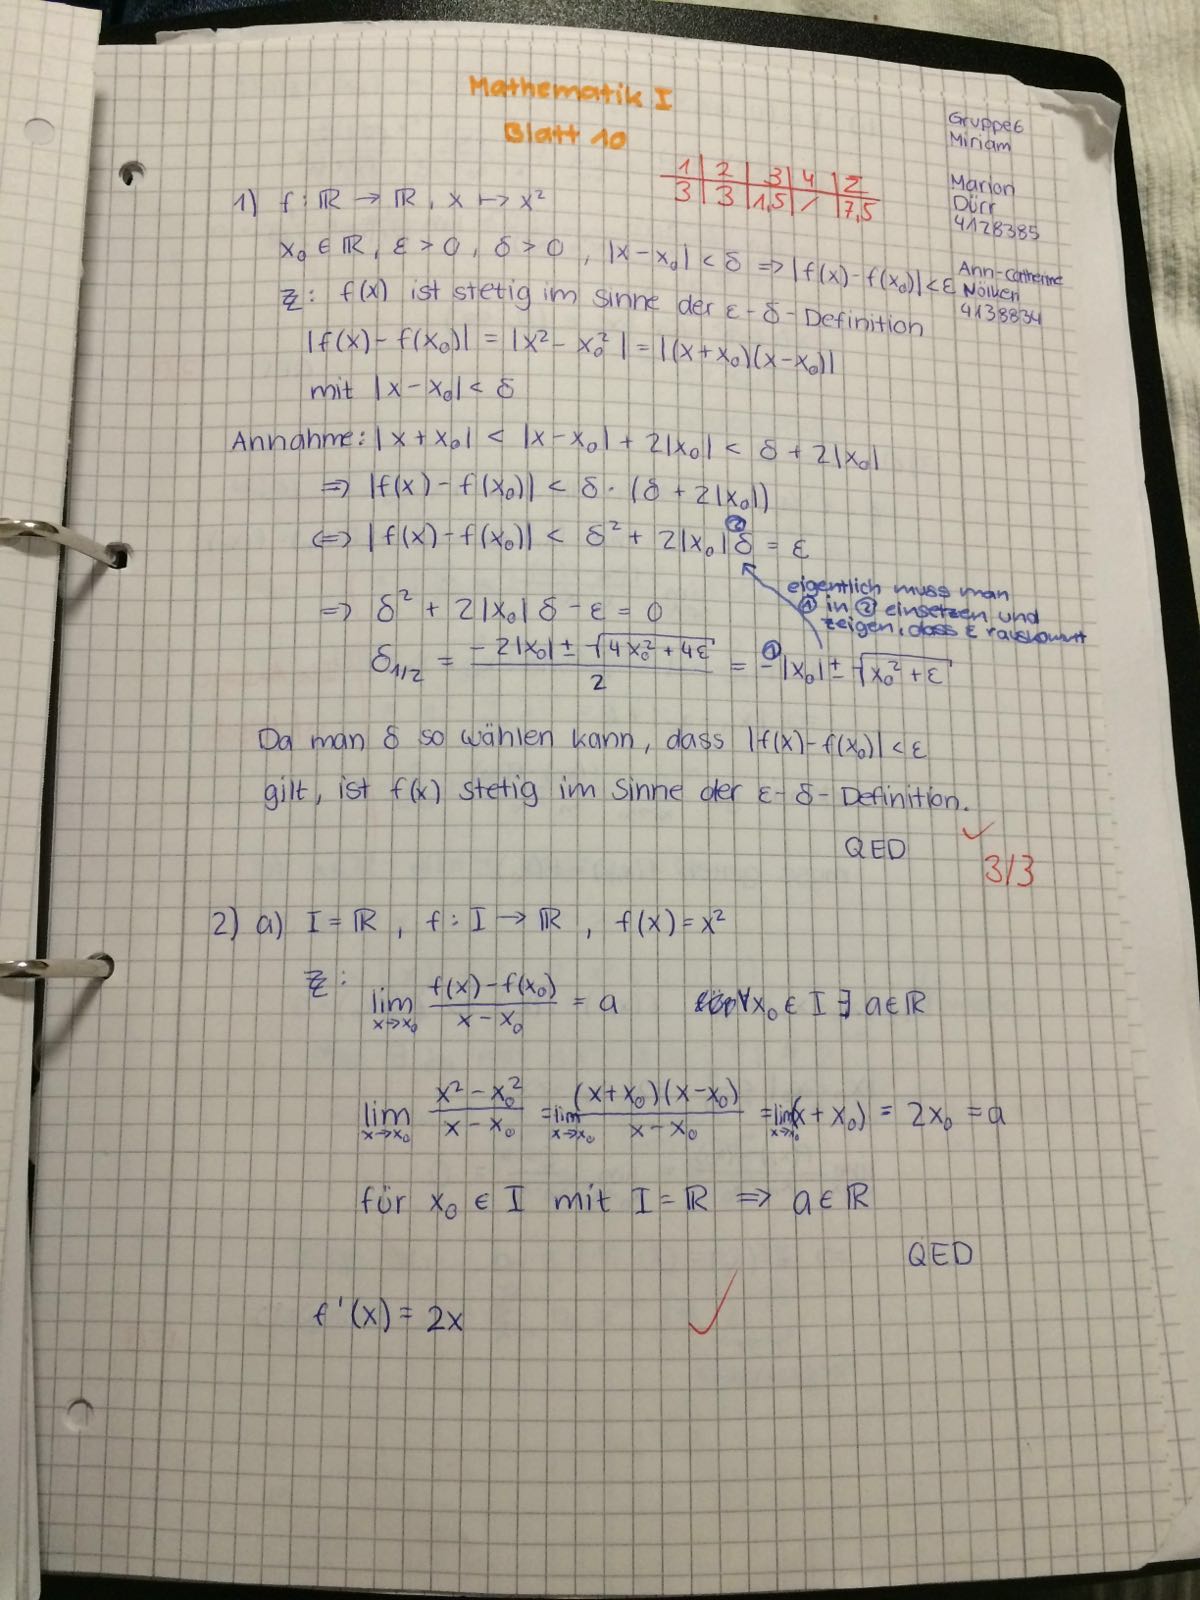 Mathematik I
Blatt 10
Gruppe 6
Miriam
Marion
Dürr
4128385
Ann-Catherine
Nölken
4138834
1 | 2 | 3 | 4 | Σ
3 | 3 | 1,5 | / | 7,5
1) f: ℝ → ℝ, x ↦ x²
x₀ ∈ ℝ, ε > 0, δ > 0, |x - x₀| < δ ⇒ |f(x) - f(x₀)| < ε
ZZ: f(x) ist stetig im Sinne der ε-δ-Definition
|f(x) - f(x₀)| = |x² - x₀²| = |(x+x₀)(x-x₀)|
mit |x - x₀| < δ
Annahme: |x + x₀| < |x - x₀| + 2|x₀| < δ + 2|x₀|
⇒ |f(x) - f(x₀)| < δ · (δ + 2|x₀|)
⇔ |f(x) - f(x₀)| < δ² + 2|x₀| δ = ε
②
eigentlich muss man
① in ② einsetzen und
zeigen, dass ε rauskommt
⇒ δ² + 2|x₀| δ - ε = 0
δ₁/₂ = (-2|x₀| ± √(4x₀² + 4ε)) / 2 = ① -|x₀| ± √(x₀² + ε)
Da man δ so wählen kann, dass |f(x) - f(x₀)| < ε
gilt, ist f(x) stetig im Sinne der ε-δ-Definition.
QED
✓ 3/3
2) a) I = ℝ, f: I → ℝ, f(x) = x²
ZZ: lim x→x₀ (f(x) - f(x₀)) / (x - x₀) = a ∀x₀ ∈ I ∃ a ∈ ℝ
lim x→x₀ (x² - x₀²) / (x - x₀) = lim x→x₀ (x+x₀)(x-x₀) / (x - x₀) = lim x→x₀ (x + x₀) = 2x₀ = a
für x₀ ∈ I mit I = ℝ ⇒ a ∈ ℝ
QED
f'(x) = 2x ✓